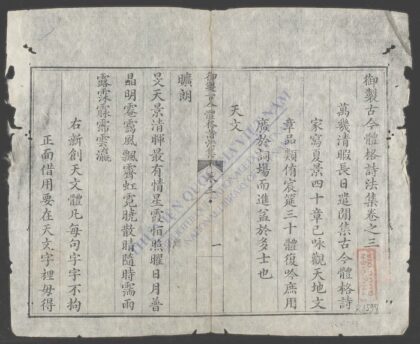 御製古今體格詩法集卷之三
萬幾清暇長日遣閒集古今體格詩
家寫夏景四十章已咏觀天地文
章品類脩宸廷三十體復吟庶用
廣於詞場而進益於多士也
天文
御製古今體格詩法集
卷三
一
曠朗
旻天景清暉最有情星霞恒照曜日月普
晶明霮靄風飄霽虹霓曉散晴隨時霑雨
露霂霡霈雲瀛
右新創天文體凡每句字字不拘
正面借用要在天文字裡毋得
THƯ VIỆN QUỐC GIA VIỆT NAM
R.1595